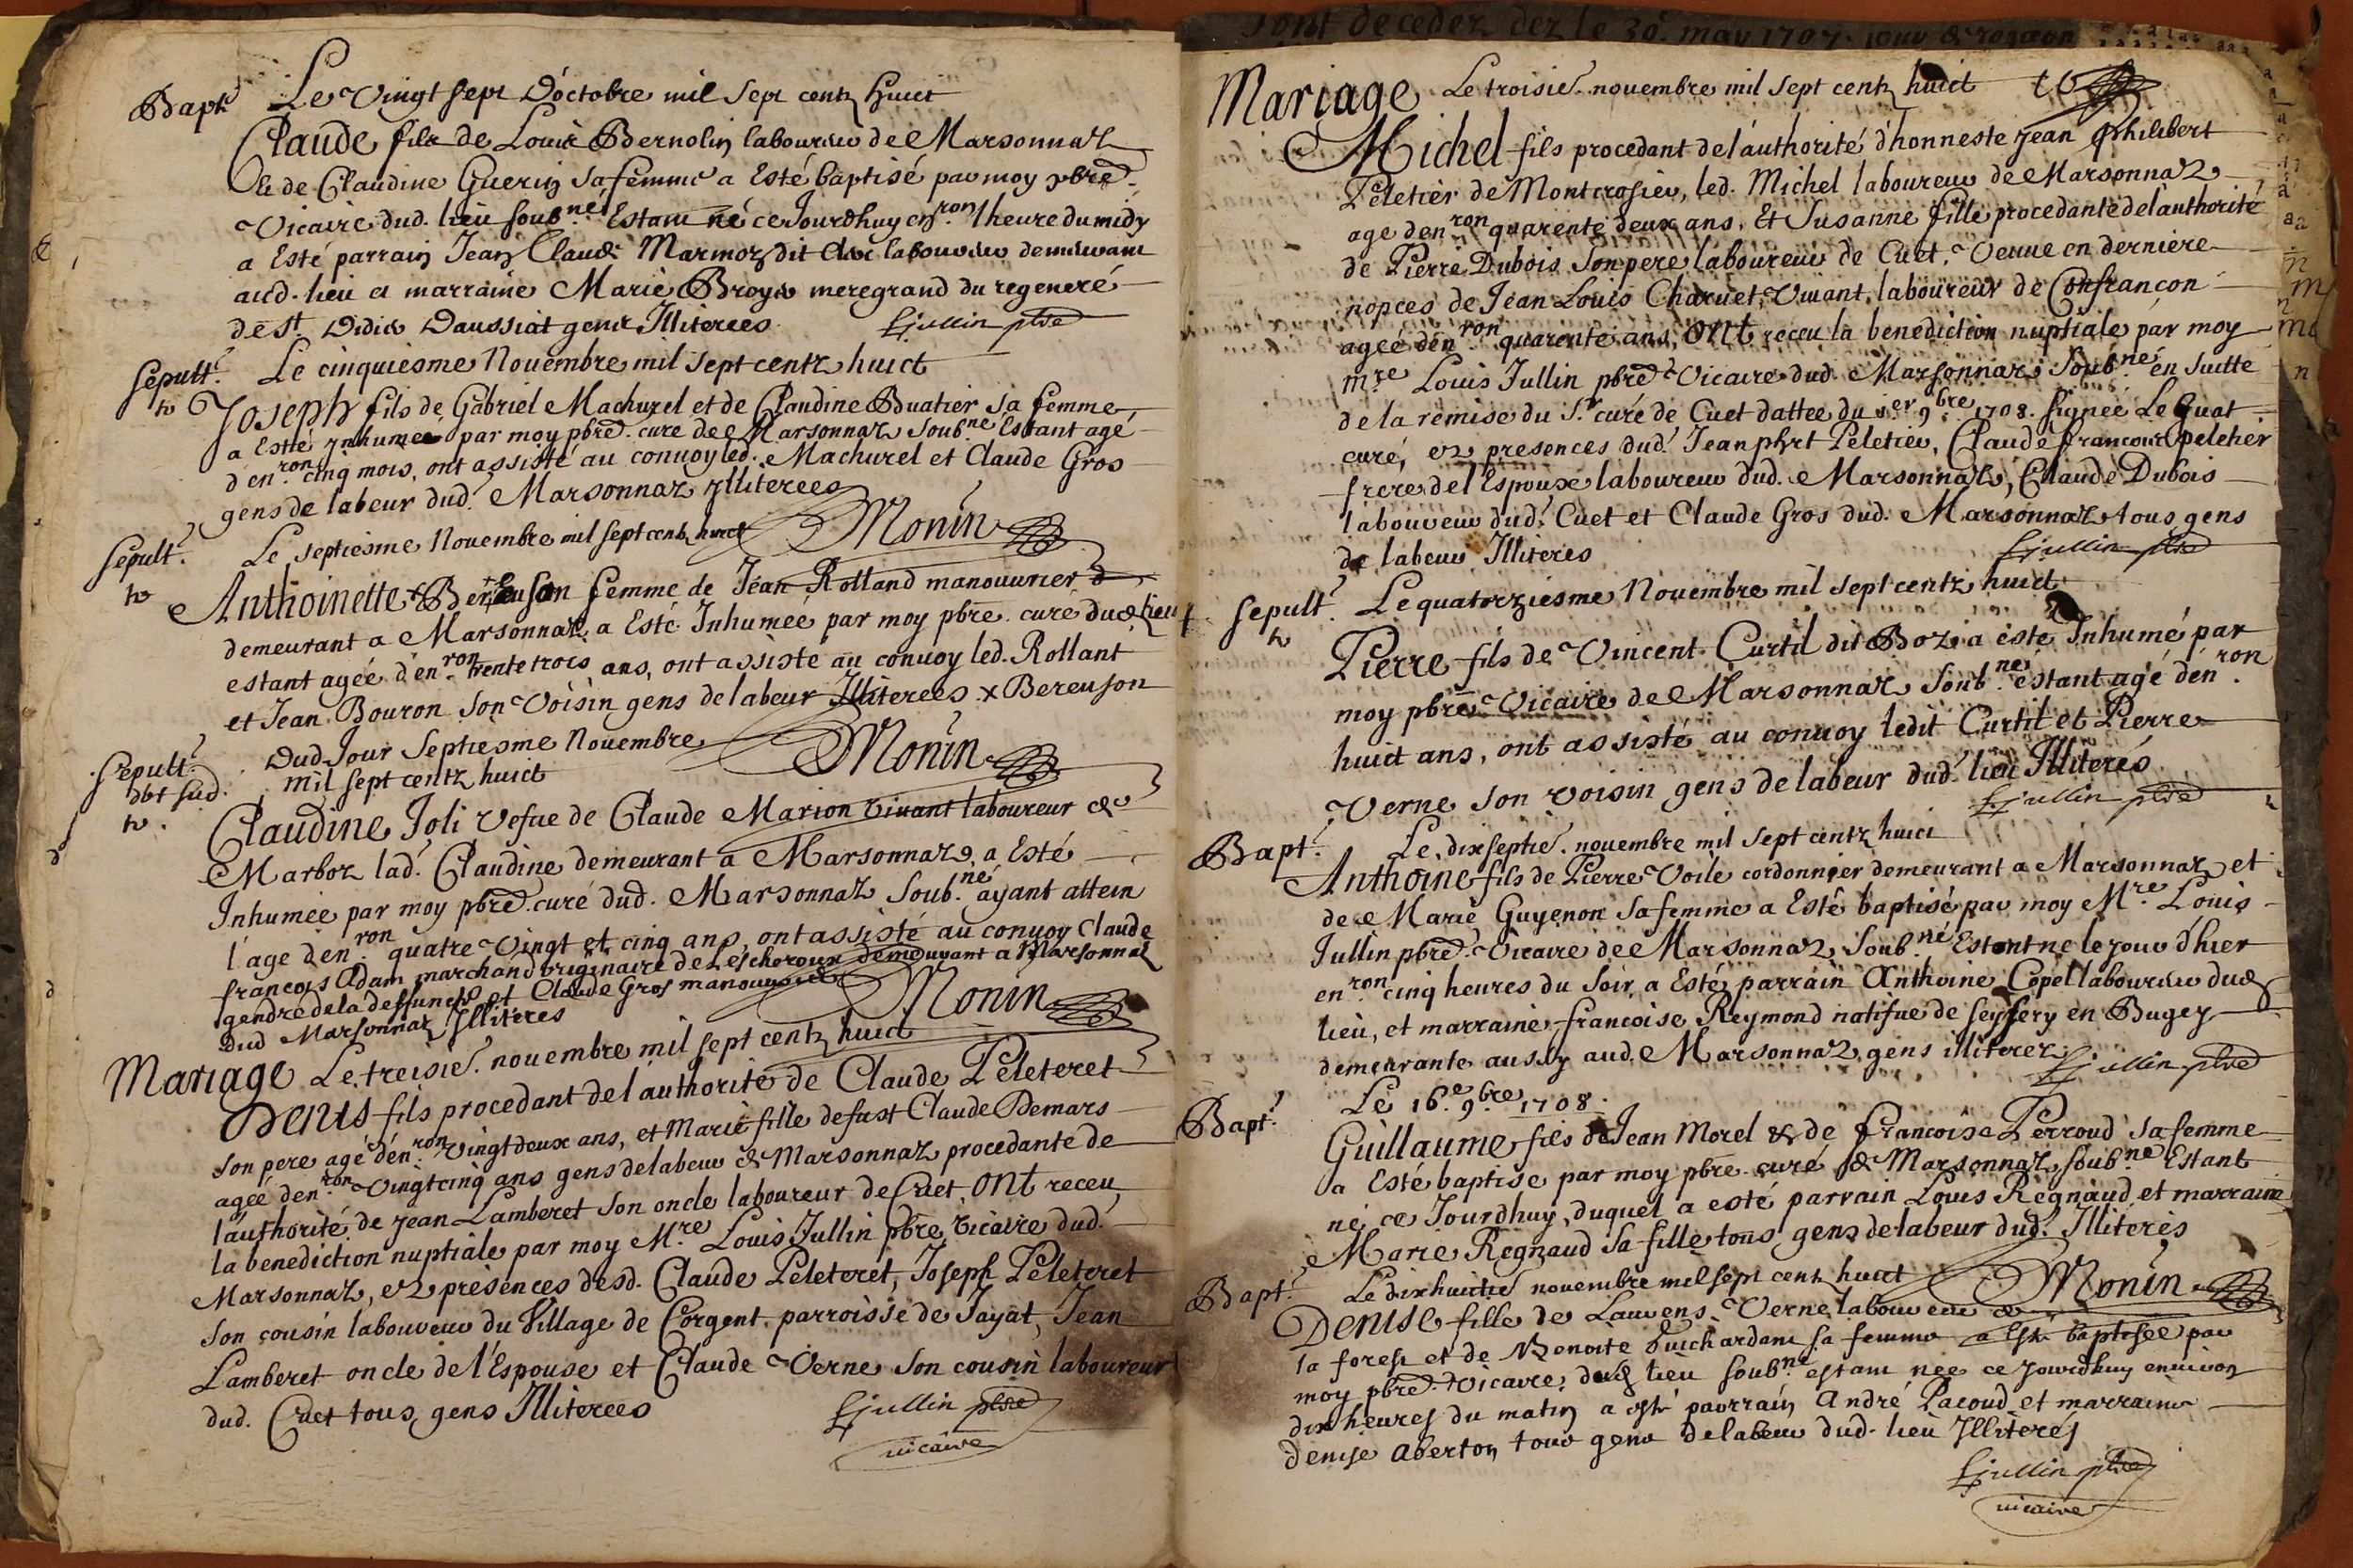 Bapt. Le Vingt sept D'octobre mil sept centz huict
Claude fils de Louis Bernolin laboureur de Marsonnaz
& de Claudine Guerin sa femme a Esté baptisé par moy pbre.
Vicaire dud. lieu soub.né Estant né ce Jourdhuy en.ron 1 heure du midy
a Esté parrain Jean Claude Marmoz dit laboureur demeurant
aud. lieu et marraine Marie Broyer meregrand du regeneré
de st. Didier Daussiat gens Illiterees LJullin pbre
sepult. Le cinquiesme Novembre mil sept centz huict
Joseph fils de Gabriel Machurel et de Claudine Buatier sa femme,
a Esté Inhumee par moy pbre. cure de Marsonnaz soub.né Estant agé
d'en.ron cinq mois, ont assisté au convoy led. Machurel et Claude Gros
gens de labeur dud. Marsonnaz Illiterees
Monin
Sepult. Le septiesme Novembre mil sept centz huict
Anthoinette femme de Jean Rolland manouvrier
demeurant a Marsonnaz, a Esté Inhumée par moy pbre. curé dud. lieu
estant agée d'en.ron trente trois ans, ont assisté au convoy led. Rollant
et Jean Bouron son Voisin gens de labeur Illiterees x Bereuson
Monin
Sepult. Dud. Jour Septiesme Novembre
mil sept centz huict
Claudine Joli vefve de Claude Marion vivant laboureur de
Marboz lad. Claudine demeurant a Marsonnaz, a Esté
Inhumée par moy pbre. curé dud. Marsonnaz Soub.né ayant attein
l'age d'en.ron quatre Vingt et cinq ans, ont assisté au convoy Claude
francois Adam marchand originaire de Lescheroux demeurant a Marsonnaz
gendre de la deffuncte et Claude Gros manouvrier
dud Marsonnaz Illiteres
Monin
Mariage Le treisie. novembre mil sept centz huict
Denis fils procedant de l'authorité de Claude Peleteret
son pere agé d'en.ron vingt deux ans, et Marie fille defust Claude Demars
agée d'en.ron Vingt cinq ans gens de labeur de Marsonnaz procedante de
l'authorité de Jean Lamberet son oncle laboureur de Cuet, ont receu
la benediction nuptiale par moy M.re Louis Jullin pbre. vicaire dud.
Marsonnaz, ez présences desd. Claude Peleteret, Joseph Peleteret
son cousin laboureur du Village de Corgent parroisse de Jayat, Jean
Lamberet oncle de l'Espouse et Claude Verne son cousin laboureur
dud. Cuet tous gens Illiterees LJullin pbre
vicaire
Mariage Le troisie. novembre mil sept centz huict
Michel fils procedant de l'authorité d'honneste Jean Philibert
Peletier de Montcrosier, led. Michel laboureur de Marsonnaz
age d'en.ron quarente deux ans, Et Susanne fille procedante de l'authorité
de Pierre Dubois son pere laboureur de Cuet, Veuve en derniere
nopces de Jean Louis Charvet, Vivant laboureur de Confrancon
agée d'en.ron quarente ans, ont receu la benediction nuptiale par moy
m.re Louis Jullin pbre. Vicaire dud. Marsonnaz Soub.né en suitte
de la remise du S.r curé de Cuet dattee du 1.er 9.bre 1708. signée Le Guat
curé, ez presences dud. Jean phrt Peletier, Claude francois peletier
frere de l'Espoux laboureur dud. Marsonnaz, Claude Dubois
laboureur dud. Cuet et Claude Gros dud. Marsonnaz tous gens
de labeur Illiteres LJullin pbre
sepult. Le quatorziesme Novembre mil sept centz huict
Pierre fils de Vincent Curtil dit Bozi a esté Inhumé par
moy pbre. Vicaire de Marsonnaz Soub.né estant agé d'en.ron
huict ans, ont assisté au convoy ledit Curtil et Pierre
Verne son voisin gens de labeur dud. lieu Illiterés
LJullin pbre
Bapt. Le dixseptie. novembre mil sept centz huict
Anthoine fils de Pierre Voile cordonnier demeurant a Marsonnaz et
de Marie Guyenon sa femme a Esté baptisé par moy M.re Louis
Jullin pbre. Vicaire de Marsonnaz Soub.né Estant ne le jour d'hier
en.ron cinq heures du soir, a Esté parrain Anthoine Copel laboureur dud.
lieu, et marraine francoise Reymond natifve de seyssery en Bugey
demeurante aussy aud. Marsonnaz gens illiterez LJullin pbre
Bapt. Le 16.e 9.bre 1708.
Guillaume fils de Jean Morel & de francoise Perroud sa femme
a Esté baptise par moy pbre. curé de Marsonnaz, soub.né Estant
né ce Jourdhuy, duquel a esté parrain Louis Regnaud et marraine
Marie Regnaud sa fille tous gens de labeur dud. Illiterés
Monin
Bapt. Le dixhuictie novembre mil sept centz huict
Denise fille de Laurens Verne laboureur de
la forest et de Benoite Guichardant sa femme a Esté baptisee par
moy pbre. Vicaire dud. lieu soub.né estant née ce jourdhuy environ
dix heures du matin a esté parrain André Pacoud et marraine
Denise Aberton tous gens de labeur dud. lieu Illiterés
LJullin pbre
vicaire